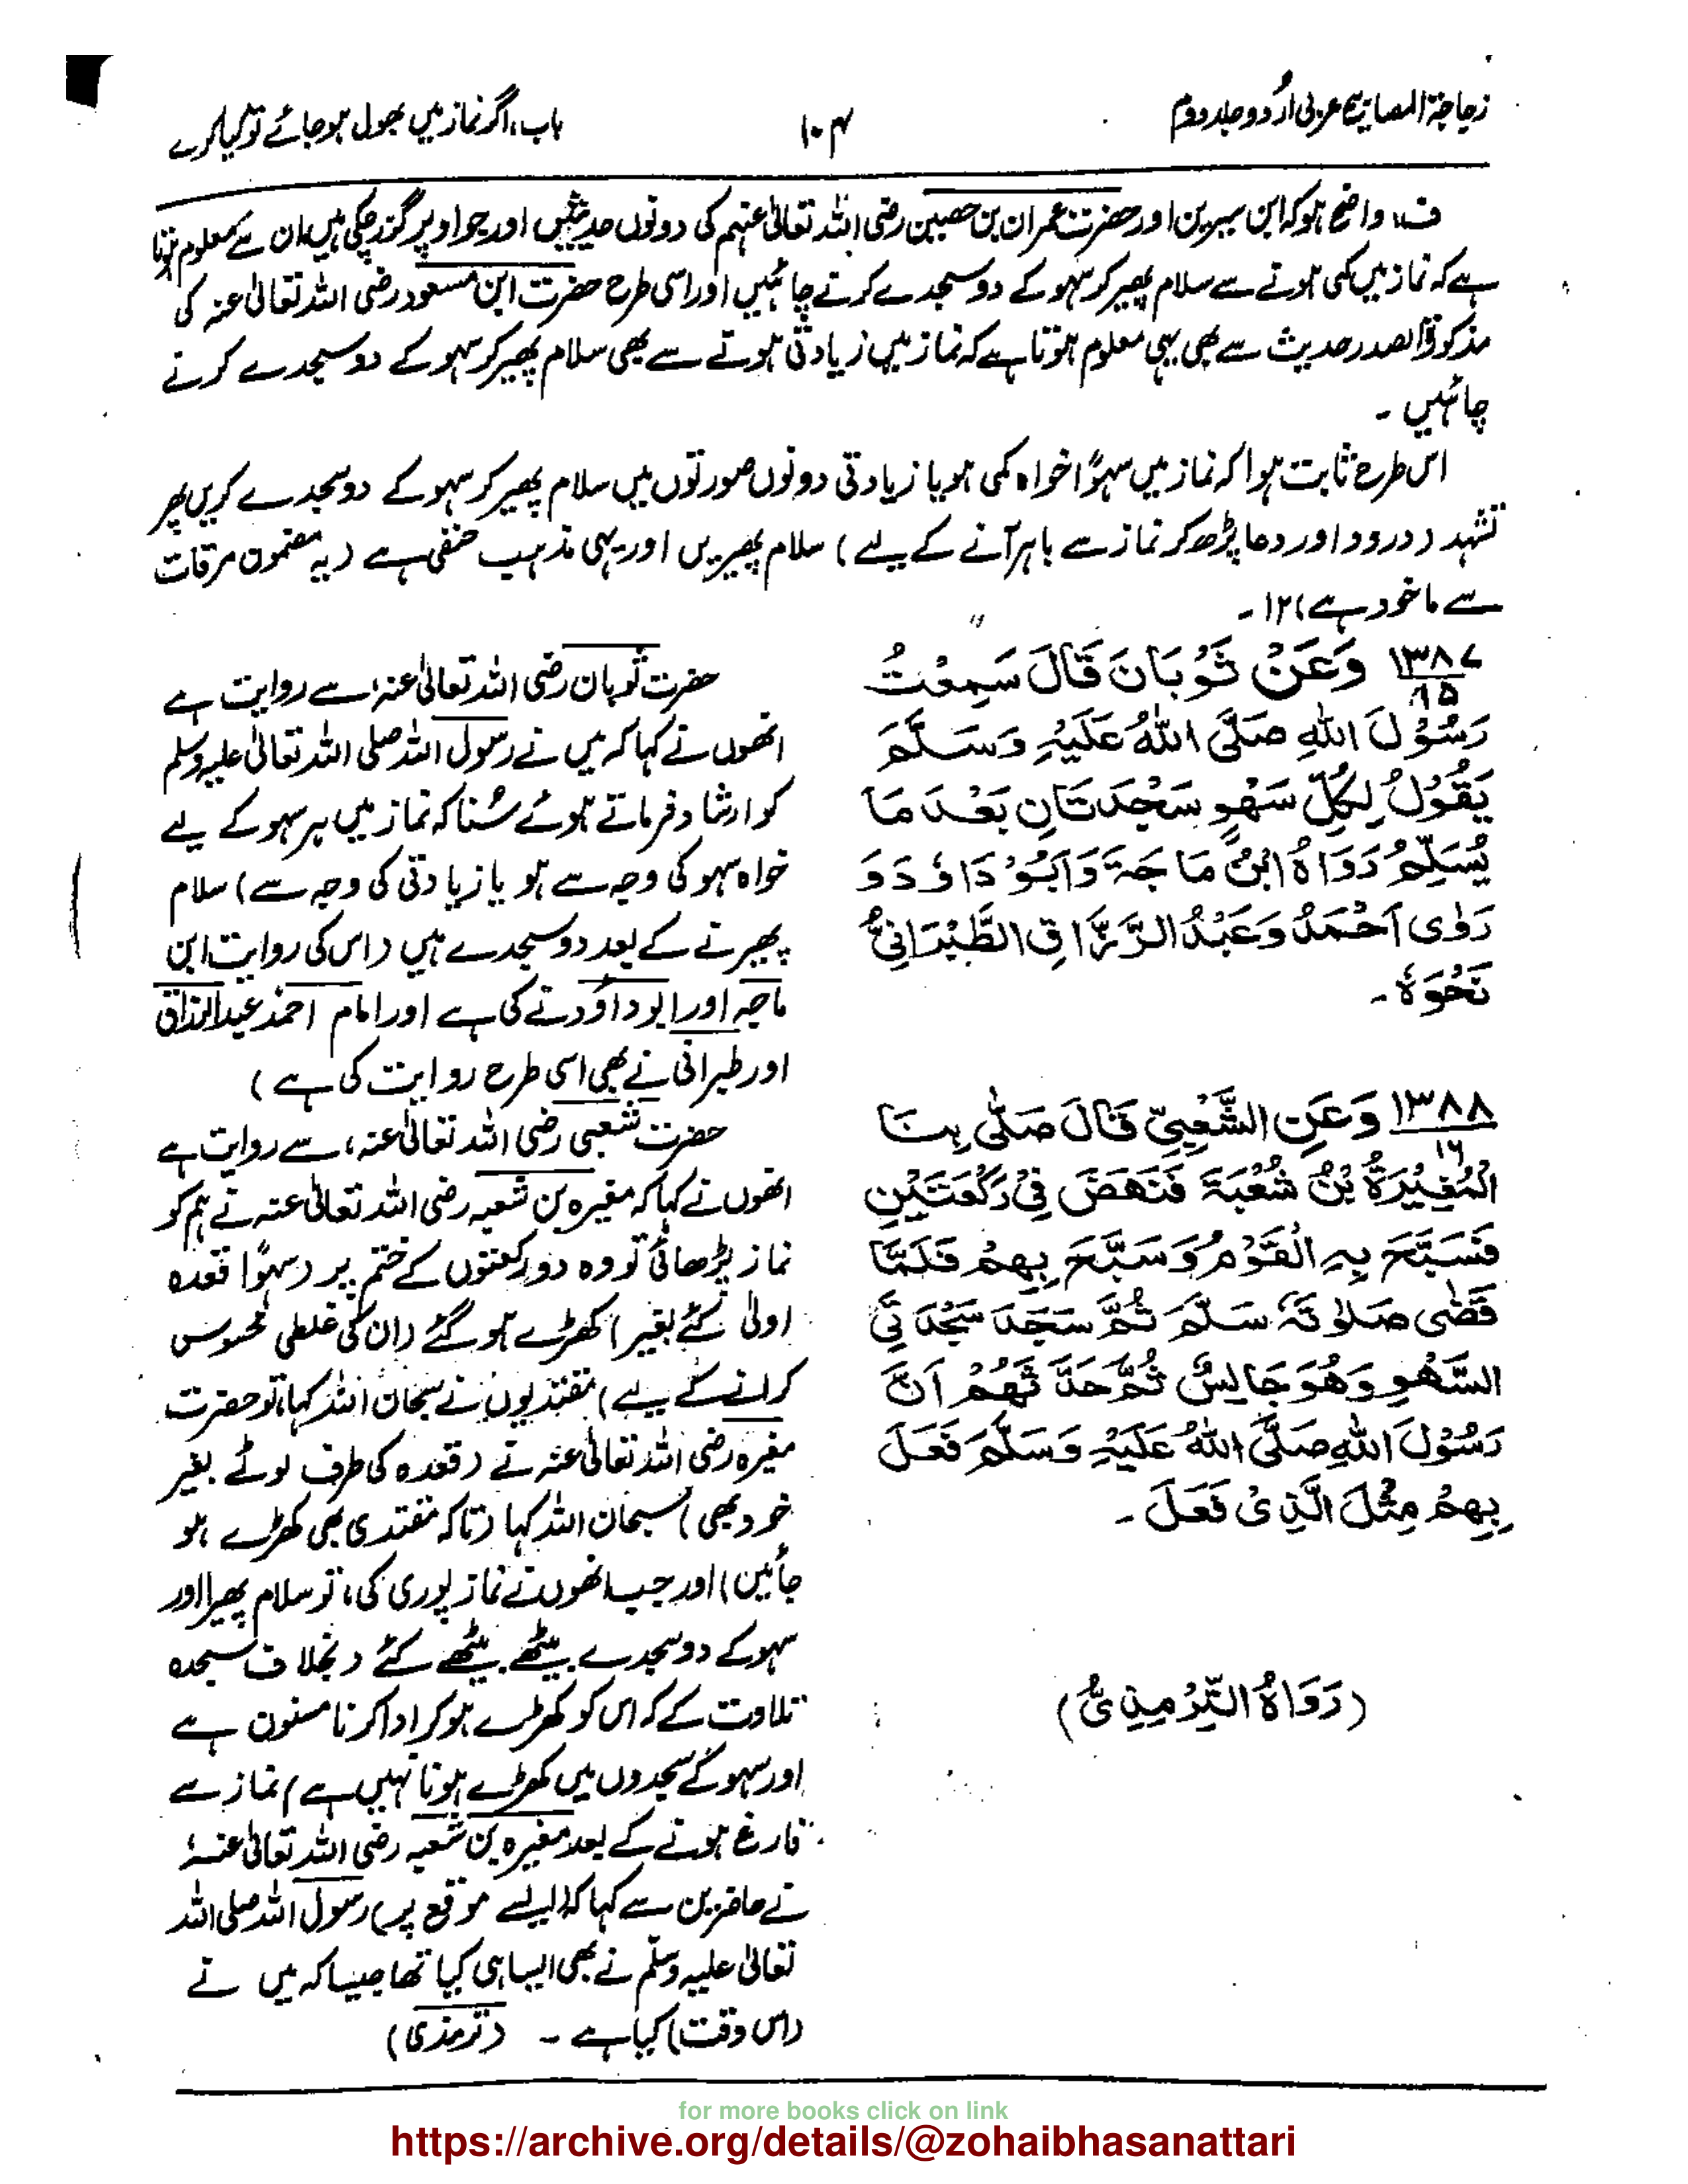 زجاجۃ المصابیح عربی اردو جلد دوم
۱۰۴
باب، اگر نماز میں بھول ہو جائے تو کیا کرے
ف: واضح ہو کہ ابن سیرین اور حضرت عمران بن حصین رضی اللہ تعالیٰ عنہم کی دونوں حدیثیں اور جو اوپر گذر چکی ہیں، ان سے معلوم ہوتا
ہے کہ نماز میں کمی ہونے سے سلام پھیر کر سہو کے دو سجدے کرنے چاہئیں اور اسی طرح حضرت ابن مسعود رضی اللہ تعالیٰ عنہ کی
مذکورۃ الصدر حدیث سے بھی یہی معلوم ہوتا ہے کہ نماز میں زیادتی ہونے سے بھی سلام پھیر کر سہو کے دو سجدے کرنے
چاہئیں ۔
اس طرح ثابت ہوا کہ نماز میں سہوًا خواہ کمی ہو یا زیادتی دونوں صورتوں میں سلام پھیر کر سہو کے دو سجدے کریں پھر
تشہد (درود اور دعا پڑھ کر نماز سے باہر آنے کے لیے) سلام پھیریں اور یہی مذہب حنفی ہے (یہ مضمون مرقات
سے ماخوذ ہے) ۱۲۔
۱۳۸۷/۱۵ وَعَنْ ثَوْبَانَ قَالَ سَمِعْتُ
رَسُوْلَ اللهِ صَلَّى اللهُ عَلَيْهِ وَسَلَّمَ
يَقُوْلُ لِكُلِّ سَهْوٍ سَجْدَتَانِ بَعْدَ مَا
يُسَلِّمُ رَوَاهُ ابْنُ مَاجَةَ وَاَبُوْ دَاوٗدَ وَ
رَوٰى اَحْمَدُ وَعَبْدُ الرَّزَّاقِ الطَّبْرَانِيُّ
نَحْوَهٗ ۔
حضرت ثوبان رضی اللہ تعالیٰ عنہ سے روایت ہے
انھوں نے کہا کہ میں نے رسول اللہ صلی اللہ تعالیٰ علیہ وسلم
کو ارشاد فرماتے ہوئے سُنا کہ نماز میں ہر سہو کے لیے
خواہ سہو کی وجہ سے ہو یا زیادتی کی وجہ سے) سلام
پھیرنے کے بعد دو سجدے ہیں (اس کی روایت ابن
ماجہ اور ابو داؤد نے کی ہے اور امام احمد عبدالرزاق
اور طبرانی نے بھی اسی طرح روایت کی ہے)
۱۳۸۸/۱۶ وَعَنِ الشَّعْبِيِّ قَالَ صَلّٰى بِنَا
الْمُغِيْرَةُ بْنُ شُعْبَةَ فَنَهَضَ فِيْ رَكْعَتَيْنِ
فَسَبَّحَ بِهِ الْقَوْمُ وَسَبَّحَ بِهِمْ فَلَمَّا
قَضٰى صَلٰوتَهٗ سَلَّمَ ثُمَّ سَجَدَ سَجْدَتَيِ
السَّهْوِ وَهُوَ جَالِسٌ ثُمَّ حَدَّثَهُمْ اَنَّ
رَسُوْلَ اللهِ صَلَّى اللهُ عَلَيْهِ وَسَلَّمَ فَعَلَ
بِهِمْ مِثْلَ الَّذِىْ فَعَلَ ۔
(رَوَاهُ التِّرْمِذِىُّ)
حضرت شعبی رضی اللہ تعالیٰ عنہ، سے روایت ہے
انھوں نے کہا کہ مغیرہ بن شعبہ رضی اللہ تعالیٰ عنہ نے ہم کو
نماز پڑھائی تو وہ دو رکعتوں کے ختم پر (سہوًا قعدہ
اولیٰ کئے بغیر) کھڑے ہو گئے (ان کی غلطی محسوس
کرانے کے لیے) مقتدیوں نے سبحان اللہ کہا، تو حضرت
مغیرہ رضی اللہ تعالیٰ عنہ نے (قعدہ کی طرف لوٹے بغیر
خود بھی) سبحان اللہ کہا (تاکہ مقتدی بھی کھڑے ہو
جائیں) اور جب انھوں نے نماز پوری کی، تو سلام پھیرا اور
سہو کے دو سجدے بیٹھے بیٹھے کئے (بخلاف سجدہ
تلاوت کے کہ اس کو کھڑے ہو کر ادا کرنا مسنون ہے
اور سہو کے سجدوں میں کھڑے ہونا نہیں ہے) نماز سے
فارغ ہونے کے بعد مغیرہ بن شعبہ رضی اللہ تعالیٰ عنہ
نے حاضرین سے کہا کہ (ایسے موقع پر) رسول اللہ صلی اللہ
تعالیٰ علیہ وسلم نے بھی ایسا ہی کیا تھا جیسا کہ میں نے
(اس وقت) کیا ہے ۔ (ترمذی)
for more books click on link
https://archive.org/details/@zohaibhasanattari